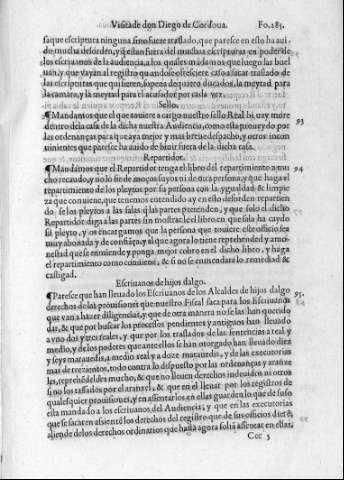 Visita de don Diego de Cordoua. Fo. 283.
sa que escriptura ninguna sino fuere traslado, que parece en esto ha aui-
do mucha desorden, y q̃ estan fuera del muchas escripturas en poder de
los escriuanos de la audiencia, a los quales mãdamos que luego las buel
uan, y que vayan al registro quando se ofresciere caso a sacar traslado de
las escripturas que quisieren, so pena de quatro ducados, la meytad para
la camara, y la meytad para el acusador por cada vez.
Sello.
¶ Mandamos que el que touiere a cargo nuestro sello Real bi, ua y more 93
dentro de la casa de la dicha nuestra Audiencia, como esta proueydo por
las ordenanças para que aya mejor y mas breue despacho, y otros incon
uinientes que paresce ha auido de biuir fuera de la dicha casa.
Repartidor.
¶ Mandamos que el Repartidor tenga el libro del repartimiento a mu 94
cho recaudo, y no lo fie de moços suyos ni de otra persona, y que haga el
repartimiento de los pleytos por su persona con la ygualdad & limpie
za que conuiene, que tenemos entendido ay en esto desorden repartien
do se los pleytos a las salas q̃ las partes pretenden, y que solo el dicho
Repartidor diga a las partes sin mostrarle el libro en que sala ha caydo
su pleyto, y os encargamos que la persona que touiere este officio sea
muy abonada y de confiãça, y al que agora lo tiene reprehended y amo-
nestad que se enmiende y ponga mejor cobro en el dicho libro, y haga
el repartimiento como conuiene, & si no se enmendare lo remediad &
castigad.
Escriuanos de hijos dalgo.
¶ Paresce que han lleuado los Escriuanos de los Alcaldes de hijos dalgo 95.
derechos de las prouisiones que nuestro Fiscal saca para los Escriuanos
que van a hazer diligencias, y que de otra manera no se las han querido
dar, & que por buscar los processos pendientes y antiguos han lleuado
a vno dos y tres reales, y que por los traslados de las sentencias a real y
medio, y de los poderes que ante ellos se han otorgado han lleuado diez
y seys marauedis, a medio real y a doze marauedis, y de las executorias
mas de trezientos, todo contra lo dispuesto por las ordenanças y aranze
les, reprehẽdeldes mucho, & que no lleuen derechos indeuidos ni otros
si no los tassados por el aranzel, & que en el lleuar por los registros de
qualesquier prouisiones, y en assentarlos en ellas guarden lo que de suso
esta mandado a los escriuanos del Audiencia, y que en las executorias
que se sacaren assienten los derechos del registro que de sus officios diere,
aliende de los derechos ordinarios que hasta agora solia assentar en ellas,
Ccc 3